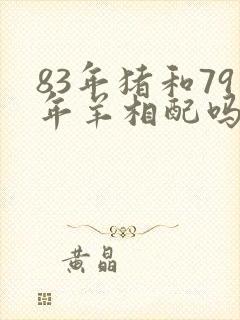 83年猪和79
年羊相配吗
黄晶